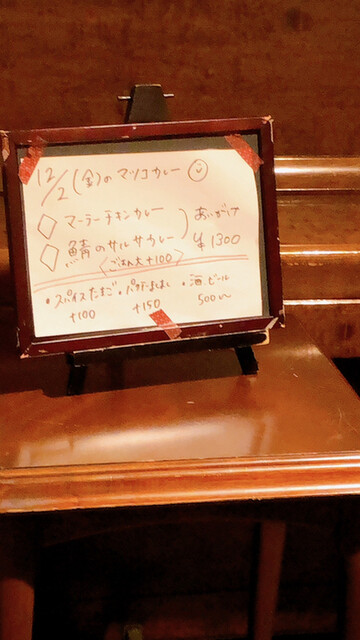 12/2(金)のマツコカレー
マーラーチキンカレー
鯖のサルサカレー
あいがけ
¥1300
〈ごはん大+100〉
・スパイスたまご ・パクチーまし ・海ビール
+100 +150 500